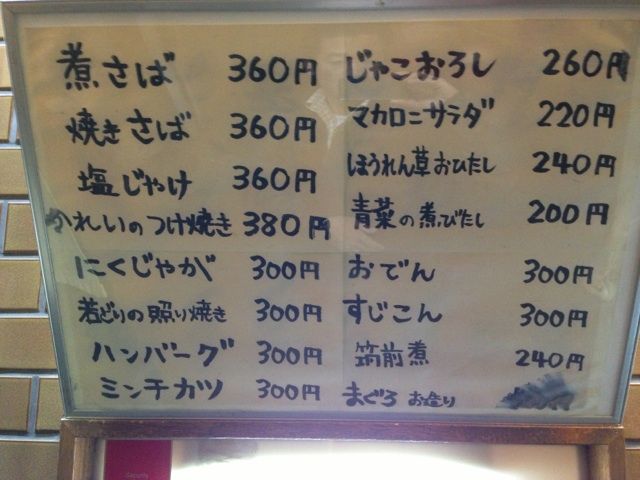 煮さば 360円
焼きさば 360円
塩じゃけ 360円
かれいのつけ焼き 380円
にくじゃが 300円
若どりの照り焼き 300円
ハンバーグ 300円
ミンチカツ 300円
じゃこおろし 260円
マカロニサラダ 220円
ほうれん草おひたし 240円
青菜の煮びたし 200円
おでん 300円
すじこん 300円
筑前煮 240円
まぐろ お造り